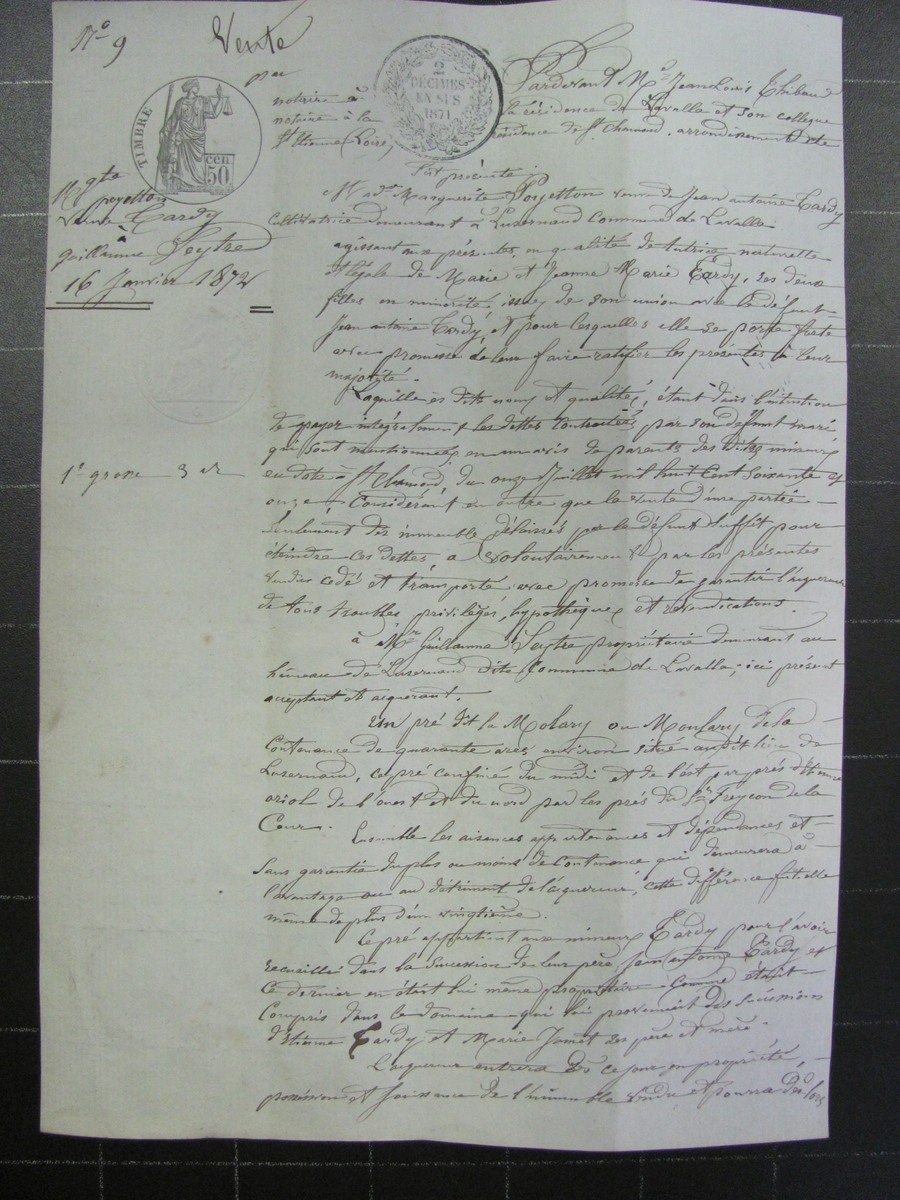 N° 9
Vente
par
TIMBRE
50 cen
2
DÉCIMES
EN SUS
1871
Mgte
poyetton
veuve Tardy
à
Guillaume Seytre
16 Janvier 1872
1e grosse 3 
Pardevant Me Jean Louis Thibaud
notaire à la résidence de Lavalla et son collègue
notaire à la résidence de St Chamond, arrondissement de
St Etienne (Loire)
Fut présente
Made Marguerite Poyetton veuve de Jean antoine Tardy
cultivatrice demeurant à Luzernaud Commune de Lavalla
agissant aux présentes, en qualité de tutrice naturelle
et légale de Marie et Jeanne Marie Tardy, ses deux
filles en minorité, issues de son union avec le défunt
Jean antoine Tardy, et pour lesquelles elle se porte forte
avec promesse de leur faire ratifier les présentes à leur
majorité.
Laquelle es dits noms et qualités, étant dans l'intention
de payer intégralement les dettes contractées par son défunt mari
qui sont mentionnées en un avis de parents des dites mineures
en date à St Chamond, du onze Juillet mil huit cent soixante et
onze, Considérant en outre que la vente d'une partie
seulement des immeubles délaissés par le défunt suffit pour
éteindre ces dettes a volontairement par les présentes
vendu cédé et transporté avec promesse de garantir l'acquéreur
de tous troubles, privilèges, hypothèques et revendications.
à Mr Guillaume Seytre propriétaire demeurant au
hameau de Luzernaud dite Commune de Lavalla, ici présent
acceptant et acquérant.
Un pré dit la Molary ou Moulary de la
Contenance de quarante ares environ situé audit lieu de
Luzernaud, ce pré confiné du midi et de l'est par prés d'
oriol de l'ouest et du nord par les prés du Sr Freycon de la
Cour.
Ensemble les aisances appartenances et dépendances et
sans garantie du plus ou moins de contenance qui demeurera à
l'avantage ou au détriment de l'acquéreur, cette différence fut elle
même de plus d'un vingtième.
Ce pré appartient aux mineures Tardy pour l'avoir
recueilli dans la succession de leur père, Jean antoine Tardy et
ce dernier en était lui même propriétaire comme étant
compris dans le domaine qui lui provenait des successions
d'Etienne Tardy et Marie Jamet ses père et mère.
L'acquéreur entrera dès ce jour en propriété,
possession et jouissance de l'immeuble vendu et pourra dès lors